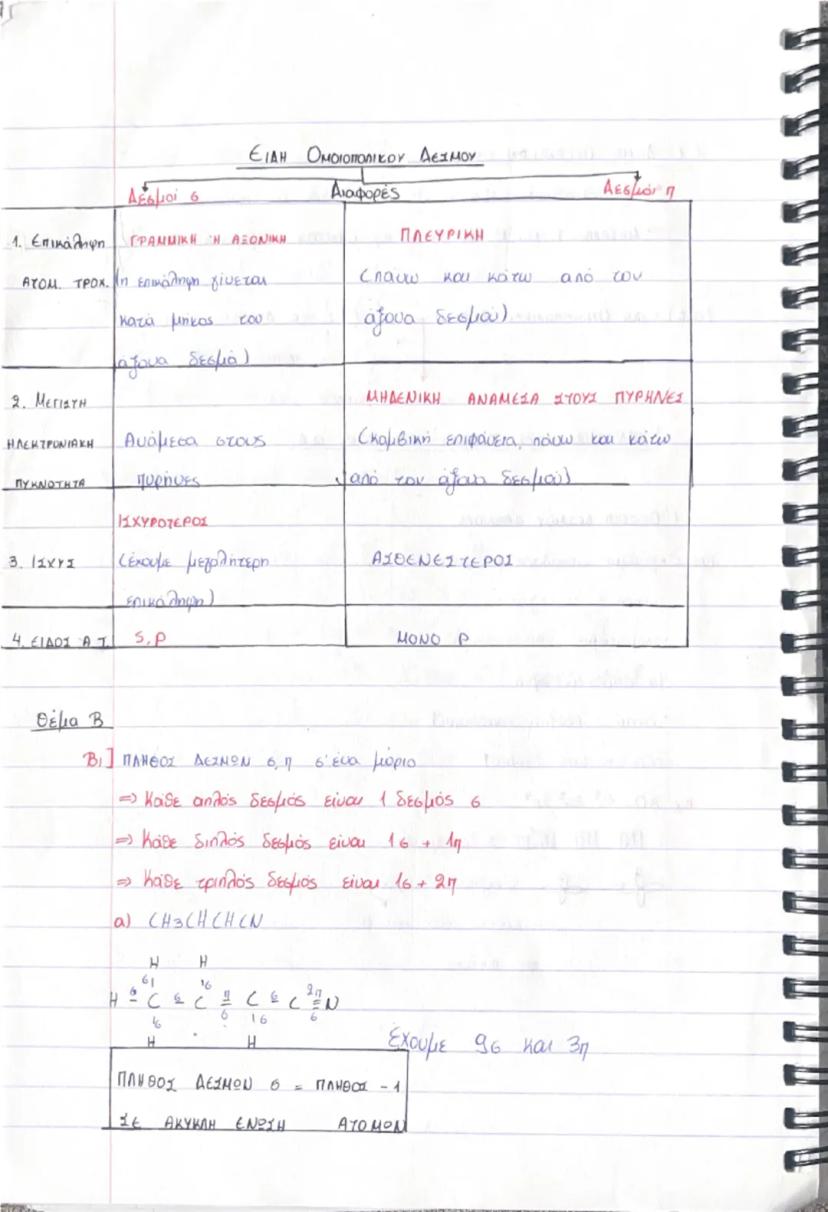 ΕΙΔΗ ΟΜΟΙΟΠΟΛΙΚΟΥ ΔΕΣΜΟΥ
Δεσμοί σ Διαφορές Δεσμοί π
1. Επικάλυψη ΓΡΑΜΜΙΚΗ Ή ΑΞΟΝΙΚΗ ΠΛΕΥΡΙΚΗ
ΑΤΟΜ. ΤΡΟΧ. (η επικάλυψη γίνεται (πάνω και κάτω από τον
κατά μήκος του άξονα δεσμού)
άξονα δεσμό)
2. ΜΕΓΙΣΤΗ ΜΗΔΕΝΙΚΗ ΑΝΑΜΕΣΑ ΣΤΟΥΣ ΠΥΡΗΝΕΣ
ΗΛΕΚΤΡΟΝΙΑΚΗ Ανάμεσα στους (κομβική επιφάνεια, πάνω και κάτω
ΠΥΚΝΟΤΗΤΑ πυρήνες από τον άξονα δεσμού)
ΙΣΧΥΡΟΤΕΡΟΣ
3. ΙΣΧΥΣ (έχουμε μεγαλήτερη ΑΣΘΕΝΕΣΤΕΡΟΣ
επικάλυψη)
4. ΕΙΔΟΣ Α.Τ. S, P ΜΟΝΟ P
Θέμα Β
Β1] ΠΛΗΘΟΣ ΔΕΣΜΩΝ σ, π σ' ένα μόριο
⇒ Κάθε απλός δεσμός είναι 1 δεσμός σ
⇒ Κάθε διπλός δεσμός είναι 1σ + 1π
⇒ Κάθε τριπλός δεσμός είναι 1σ + 2π
α) CH3CHCHCN
H H
σ| 1σ
H σ C σ C π C σ C 2π N
σ σ 1σ σ
H H
Έχουμε 9σ και 3π
ΠΛΗΘΟΣ ΔΕΣΜΩΝ σ = ΠΛΗΘΟΣ -1
ΣΕ ΑΚΥΚΛΗ ΕΝΩΣΗ ΑΤΟΜΩΝ